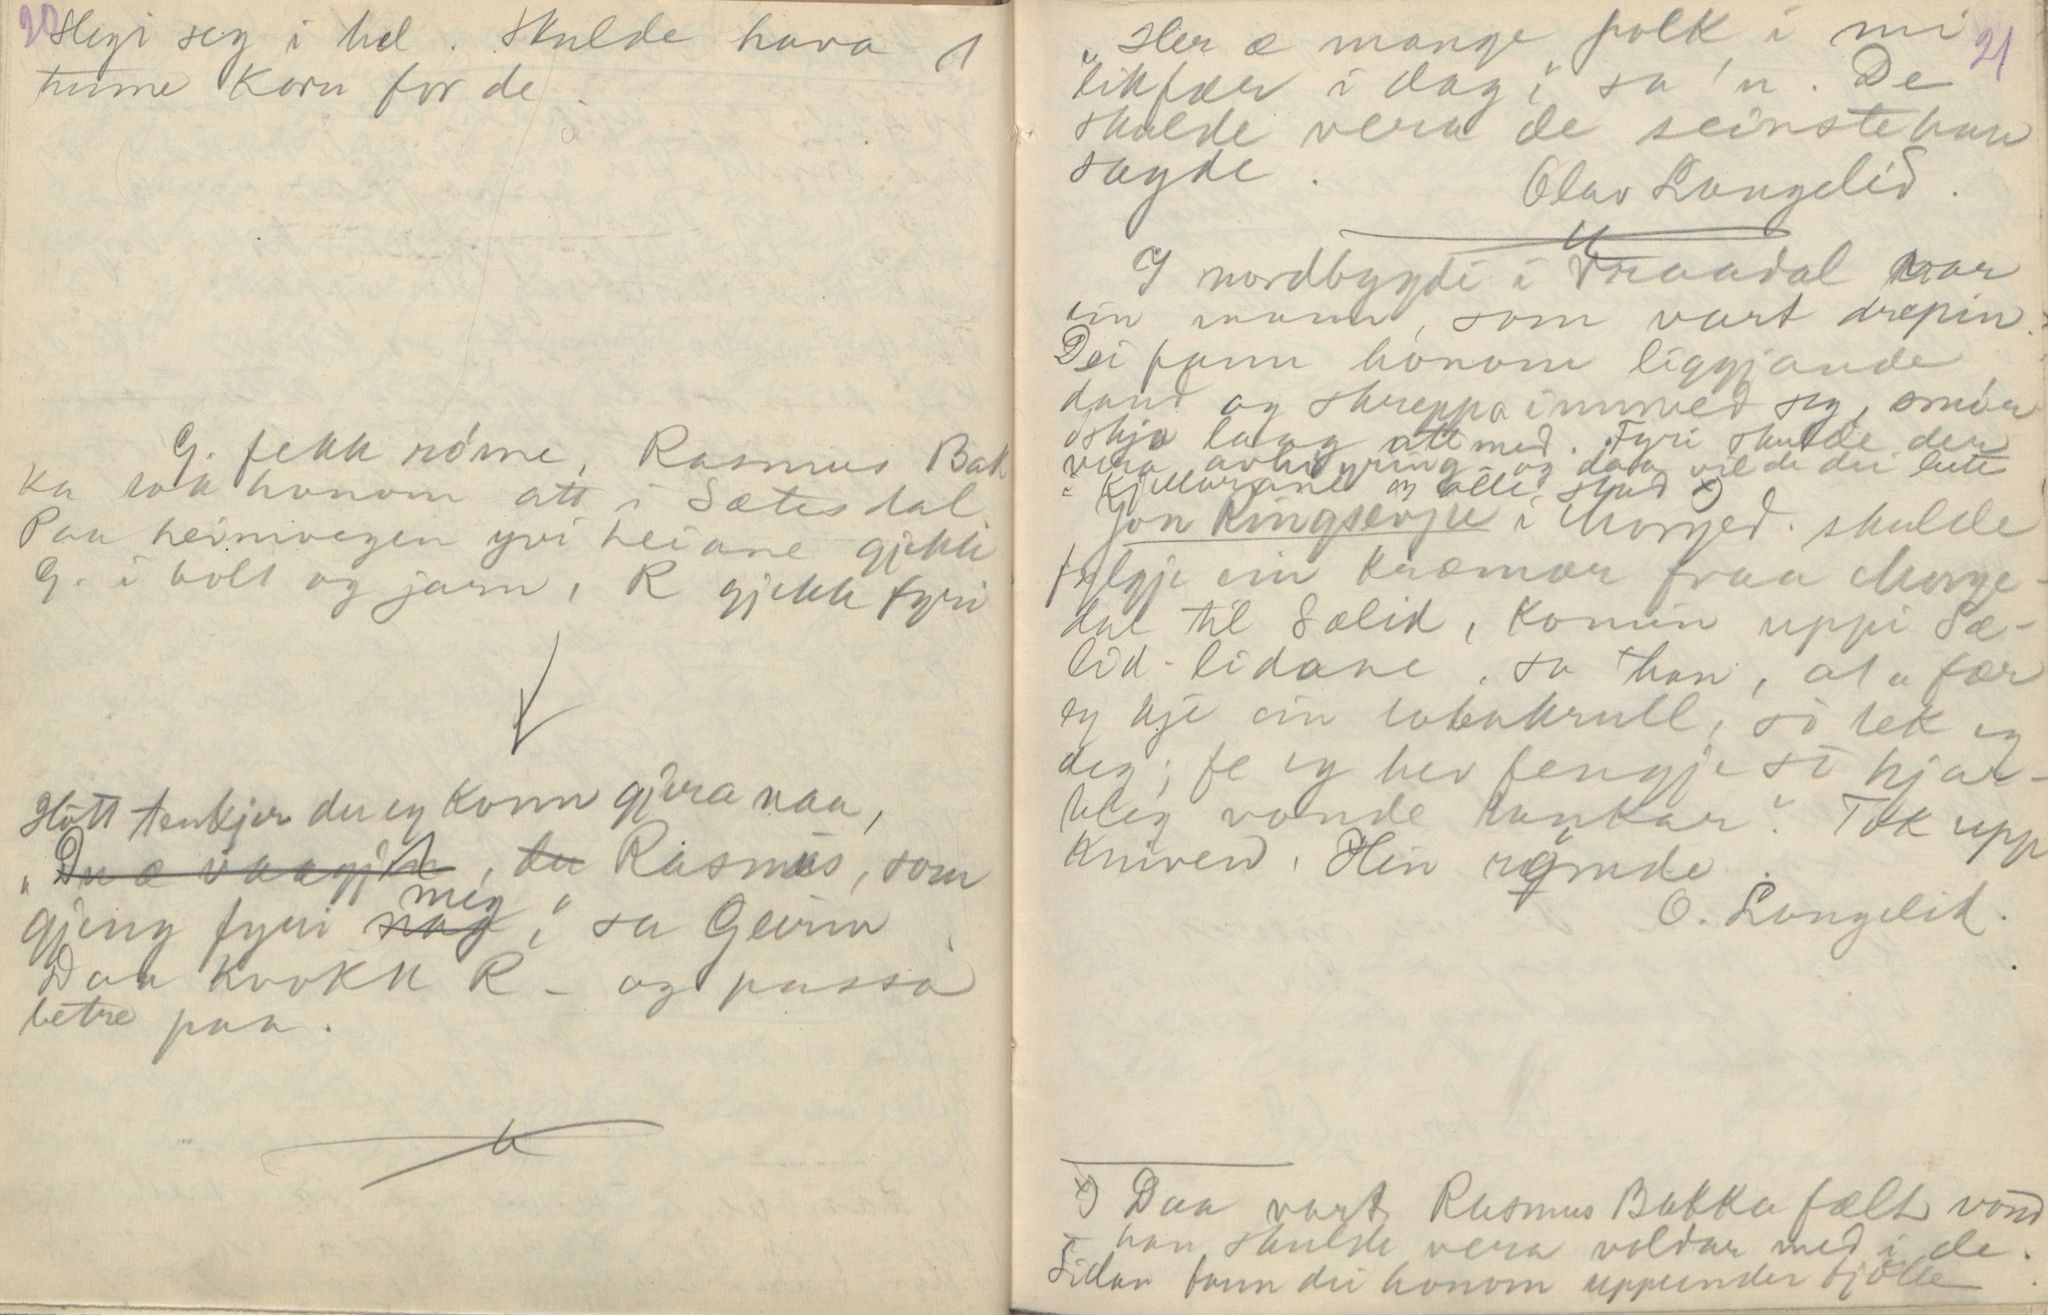 20
slegi seg i hel. Skulde hava 1
tunne Korn for de.
G. fekk røme, Rasmus Bak
ka tok honom att i Sætesdal.
Paa heimvegen yvi heiane gjekk
G. i bolt og jarn, R gjekk fyri
Hòtt tenkjer du eg Konn gjera naa,
"Du æ vaagjen, du Rasmus, som
gjeng fyri meg," sa Geirin
Daa kvokk R – og passa
betre paa.
21
"Her æ mange folk i mi
likfær i dag," sa 'n. De
skulde vera de seinste han
sagde.
Olav Langelid.
I nordbygdi i Vraadal var
ein mann, som vart drepin.
Dei fann honom liggjande
daud og skreppa innved seg, smør
øskja laag attmed. Fyri skulde der
vera avhøyring og daa vilde dei leite
i Kjellarane i alle stad x)
Jon Ringsevju i Morged. skulde
fylgje ein Kræmar fraa Morge-
dal til Sælid, Komin uppi Sæ-
lid-lidane, sa han, at "fær
eg kje ein tobakrull, so tek eg
deg; fe eg hev fengje so hjar-
teleg vonde tankar". Tok upp
Kniven. Hin rømde.
O. Langelid.
x) Daa vart Rasmus Bakka fælt vond
han skulde vera valdar med i de.
Sidan fann dei honom uppunder fjølle